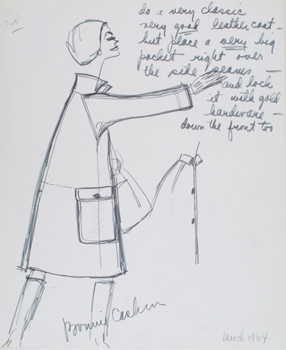 do a very classic
very good leather coat -
but place a very big
pocket right over
the side seams -
and lock
it with gold
hardware -
down the front too
Bonnie Cashin
March 1964